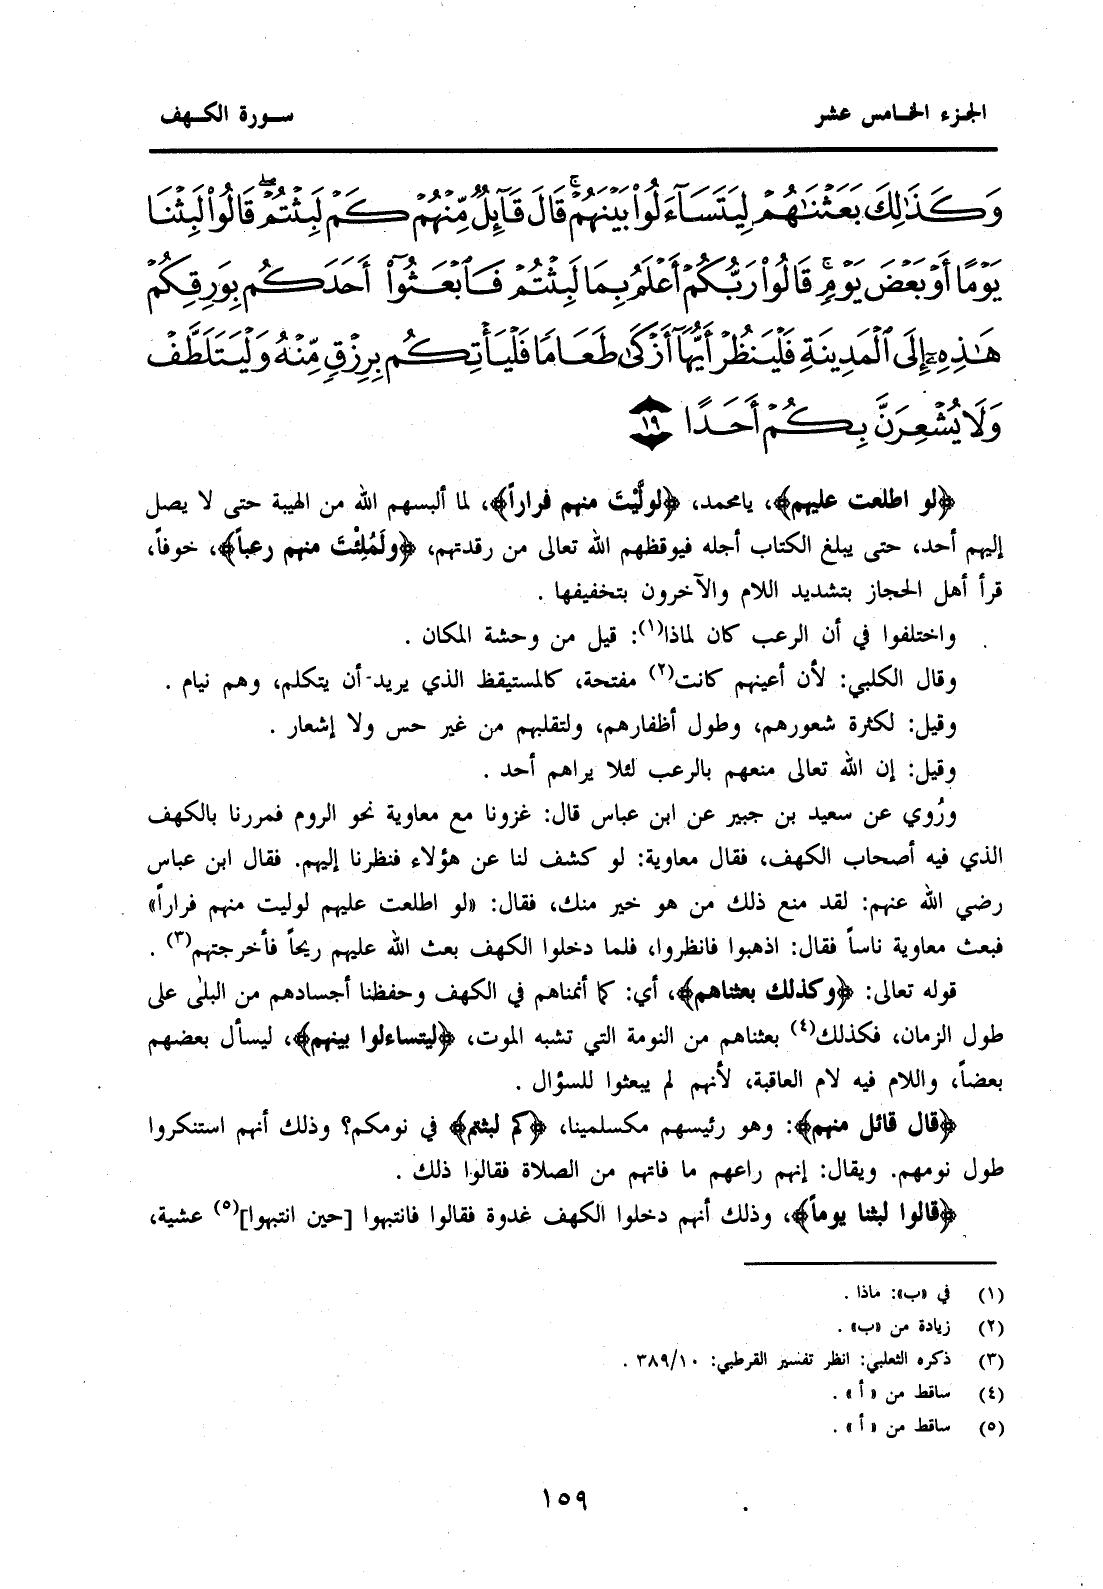 الجزء الخامس عشر
سورة الكهف
وَكَذَٰلِكَ بَعَثْنَٰهُمْ لِيَتَسَآءَلُوا۟ بَيْنَهُمْ ۚ قَالَ قَآئِلٌ مِّنْهُمْ كَمْ لَبِثْتُمْ ۖ قَالُوا۟ لَبِثْنَا
يَوْمًا أَوْ بَعْضَ يَوْمٍ ۚ قَالُوا۟ رَبُّكُمْ أَعْلَمُ بِمَا لَبِثْتُمْ فَٱبْعَثُوٓا۟ أَحَدَكُم بِوَرِقِكُمْ
هَٰذِهِۦٓ إِلَى ٱلْمَدِينَةِ فَلْيَنظُرْ أَيُّهَآ أَزْكَىٰ طَعَامًا فَلْيَأْتِكُم بِرِزْقٍ مِّنْهُ وَلْيَتَلَطَّفْ
وَلَا يُشْعِرَنَّ بِكُمْ أَحَدًا ١٩
﴿لو اطلعت عليهم﴾، يامحمد، ﴿لولَّيْتَ منهم فراراً﴾، لما ألبسهم الله من الهيبة حتى لا يصل
إليهم أحد، حتى يبلغ الكتاب أجله فيوقظهم الله تعالى من رقدتهم، ﴿ولَمُلِئْتَ منهم رعباً﴾، خوفاً،
قرأ أهل الحجاز بتشديد اللام والآخرون بتخفيفها .
واختلفوا في أن الرعب كان لماذا(١): قيل من وحشة المكان .
وقال الكلبي: لأن أعينهم كانت(٢) مفتحة، كالمستيقظ الذي يريد أن يتكلم، وهم نيام .
وقيل: لكثرة شعورهم، وطول أظفارهم، ولتقلبهم من غير حس ولا إشعار .
وقيل: إن الله تعالى منعهم بالرعب لئلا يراهم أحد .
ورُوي عن سعيد بن جبير عن ابن عباس قال: غزونا مع معاوية نحو الروم فمررنا بالكهف
الذي فيه أصحاب الكهف، فقال معاوية: لو كشف لنا عن هؤلاء فنظرنا إليهم. فقال ابن عباس
رضي الله عنهم: لقد منع ذلك من هو خير منك، فقال: «لو اطلعت عليهم لوليت منهم فراراً»
فبعث معاوية ناساً فقال: اذهبوا فانظروا، فلما دخلوا الكهف بعث الله عليهم ريحاً فأخرجتهم(٣) .
قوله تعالى: ﴿وكذلك بعثناهم﴾، أي: كما أنمناهم في الكهف وحفظنا أجسادهم من البلى على
طول الزمان، فكذلك(٤) بعثناهم من النومة التي تشبه الموت، ﴿ليتساءلوا بينهم﴾، ليسأل بعضهم
بعضاً، واللام فيه لام العاقبة، لأنهم لم يبعثوا للسؤال .
﴿قال قائل منهم﴾: وهو رئيسهم مكسلمينا، ﴿كم لبثتم﴾ في نومكم؟ وذلك أنهم استنكروا
طول نومهم. ويقال: إنهم راعهم ما فاتهم من الصلاة فقالوا ذلك .
﴿قالوا لبثنا يوماً﴾، وذلك أنهم دخلوا الكهف غدوة فقالوا فانتبهوا [حين انتبهوا](٥) عشية،
(١) في «ب»: ماذا .
(٢) زيادة من «ب» .
(٣) ذكره الثعلبي: انظر تفسير القرطبي: ٣٨٩/١٠ .
(٤) ساقط من « أ » .
(٥) ساقط من « أ » .
١٥٩